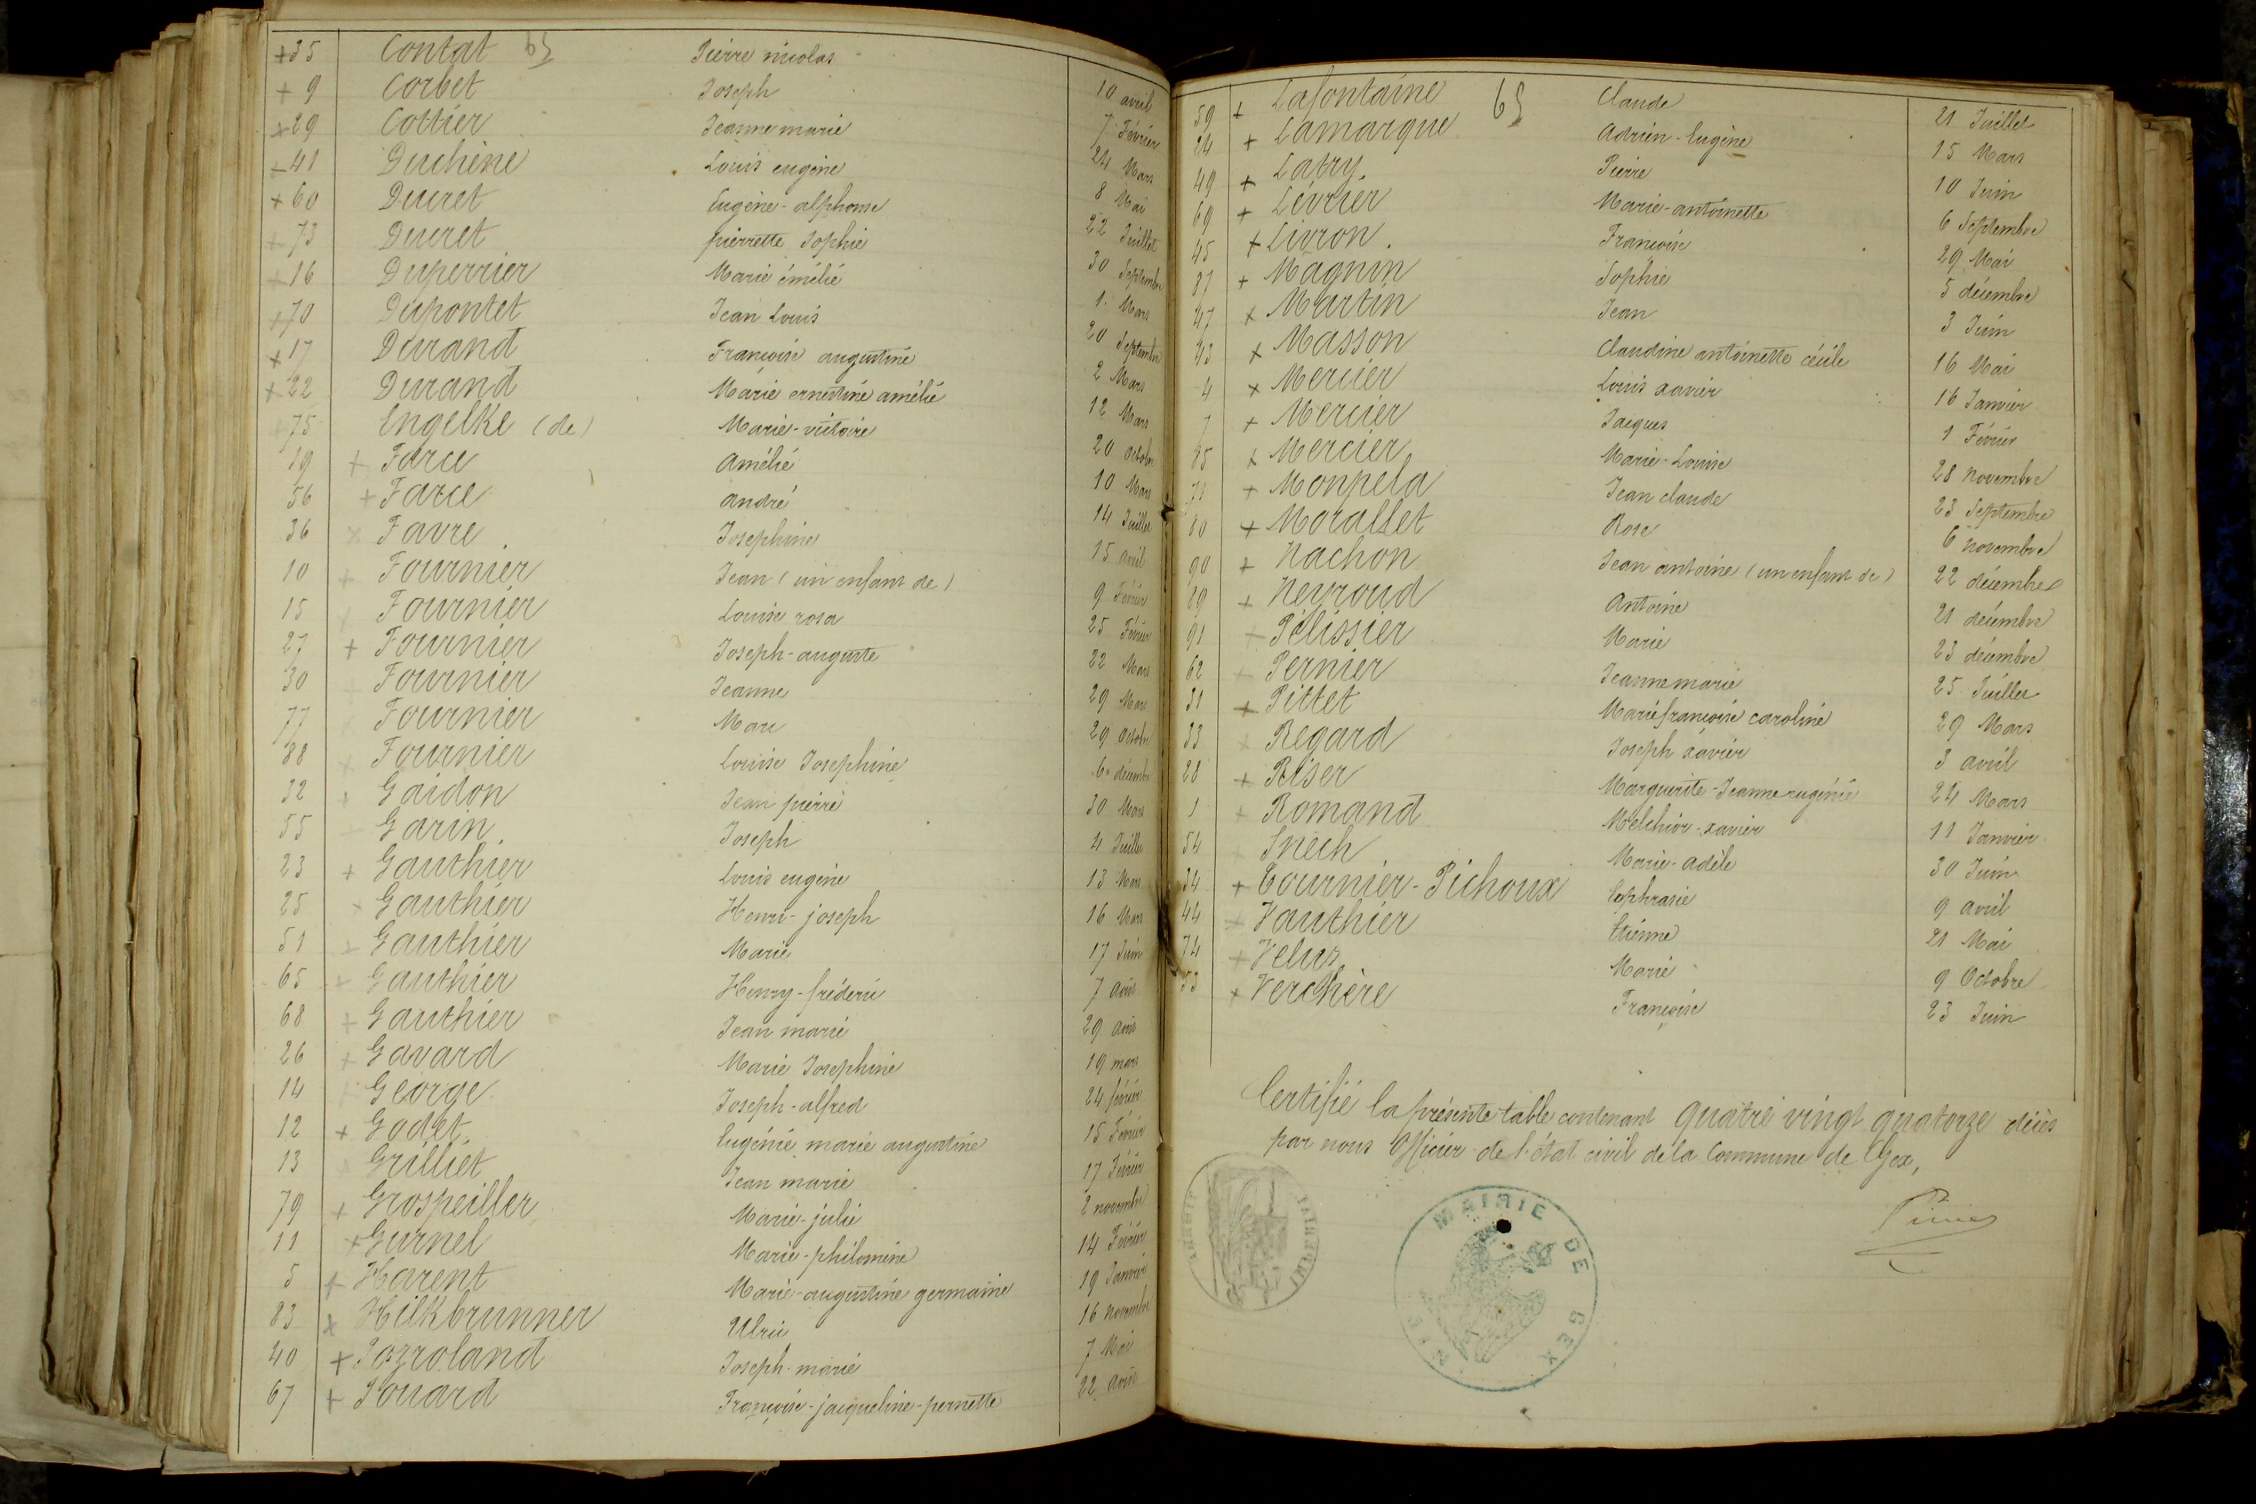 +35 Contat 65 Pierre nicolas 10 avril
+ 9 Corbet Joseph 7 Février
+29 Cottier Jeanne marie 24 Mars
+41 Duchêne Louis eugène 8 Mai
+60 Ducret Eugène-alphonse 22 Juillet
+73 Ducret pierrette Sophie 30 Septembre
+16 Duperrier Marie émélie 1 Mars
+70 Dupontet Jean Louis 20 Septembre
+17 Durand Françoise augustine 2 Mars
+22 Durand Marie ernestine amélie 12 Mars
75 Engelke (de) Marie-victoire 20 octobre
19 + Farce Amélie 10 Mars
56 + Farce André 14 Juillet
36 x Favre Josephine 15 avril
10 + Fournier Jean (un enfant de) 9 Février
15 + Fournier Louise rosa 25 Février
27 + Fournier Joseph-auguste 22 Mars
30 + Fournier Jeanne 29 Mars
77 x Fournier Marc 29 Octobre
88 x Fournier Louise Josephine 6 décembre
32 + Gaidon Jean pierre 30 Mars
55 Garin Joseph 4 Juillet
23 + Gauthier Louis eugène 13 Mars
25 + Gauthier Henri-joseph 16 Mars
51 + Gauthier Marie 17 Juin
65 + Gauthier Henry-fréderic 7 août
68 + Gauthier Jean marie 29 août
26 + Gavard Marie Josephine 19 mars
14 George Joseph-alfred 24 février
12 + Godet Eugénie marie augustine 15 Février
13 Grilliet Jean marie 17 Février
79 + Grospeiller Marie-julie 2 novembre
11 + Gurnel Marie-philomène 14 Février
5 + Harent Marie-augustine germaine 19 Janvier
83 x Hilkbrunner Ulric 16 Novembre
40 + Jazroland Joseph-marie 7 Mai
67 + Jouard Françoise-jacqueline-pernette 22 août
59 + Lafontaine 65 Claude 21 Juillet
24 + Lamarque Adrien-Eugène 15 Mars
49 + Latry Pierre 10 Juin
69 + Lévrier Marie-antoinette 6 Septembre
45 + Livron Françoise 29 Mai
87 + Magnin Sophie 5 décembre
47 x Martin Jean 3 Juin
43 x Masson Claudine antoinette cécile 16 Mai
4 x Mercier Louis xavier 16 Janvier
7 + Mercier Jacques 1 Février
85 x Mercier Marie-Louise 28 novembre
71 + Monpela Jean claude 23 Septembre
80 + Morallet Rose 6 novembre
90 + Nachon Jean antoine (un enfant de) 22 décembre
89 + Neyroud Antoine 21 décembre
91 + Pélissier Marie 23 décembre
62 + Pernier Jeanne marie 25 Juillet
31 + Pittet Marie françoise caroline 29 Mars
33 + Regard Joseph xavier 3 avril
28 + Riser Marguerite-Jeanne eugénie 24 Mars
1 + Romand Melchior-xavier 11 Janvier
54 + Snech Marie-adèle 30 Juin
34 + Tournier-Pichoux Eephrasie 9 avril
44 + Vauthier Etienne 21 Mai
74 + Velus Marie 9 Octobre
53 + Verchère Françoise 23 Juin
Certifié la présente table contenant quatre vingt quatorze décès
par nous Officier de l'état civil de la Commune de Gex,
MAIRIE DE GEX